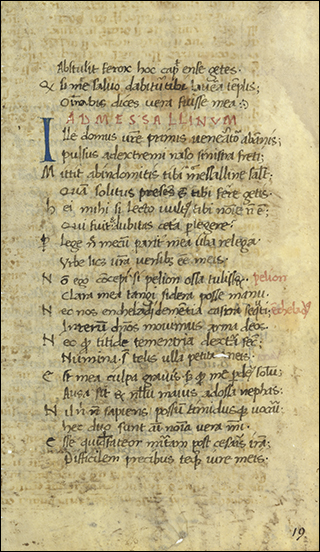 Abstulit ferox hoc cap̄ ense getes·
Q si me saluo dabit᷑ tibi laurea tēplis;
Omnia bis dices uera fuisse mea :
AD MESSALLINVM
Ille domus ur̄e primis uenerator ab annis;
pulsus ad extremi naso sinistra freti;
Mittit ab indomitis tibi messalline salt̄;
Quā solitus presens ē tibi ferre getis·
hei mihi si lecto uult᷒ tibi noīe n̄ ē;
Qui fuit dubitas cetera plegere·
lege n̄ mecū parit mea uba relega
Vrbe licet ur̄a uersib; ēe meis·
Nō ego cōcepi si pelion ossa tulisset pelion
Clara mea tangi sidera posse manu;
Nec nos encheladi demētia castra secuti;
In rerū dn̄os mouimus arma deos
Nec q titide temeraria dext̄a fec̄;
Numina st̄ telis ulla petita meis·
Est mea culpa grauis s q me pdē solū;
Ausa sit & nllū maius adorta nephas·
Nil n̄ sapiens possū timidusq uocari;
hec duo sunt aīi noīa uera mei·
Esse quidē fateor m̄itam post cesaris irā;
Difficilem precibus teq iure meis·
19